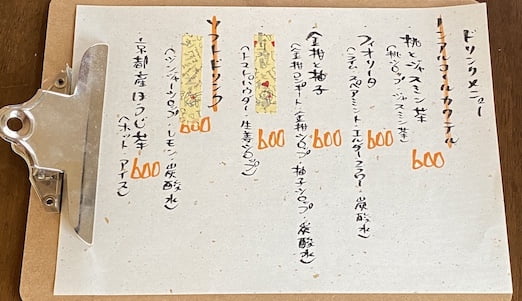 ドリンクメニュー
ノンアルコールカクテル
桃とジャスミン茶
(桃シロップ・ジャスミン茶)
600
フィオリータ
(ライム・スペアミント・エルダーフラワー・炭酸水)
600
金柑と柚子
(金柑コンポート・金柑シロップ・柚子シロップ・炭酸水)
600
600
ソフトドリンク
(ジンジャーシロップ・レモン・炭酸水)
600
京都産ほうじ茶
(ホット・アイス)
600